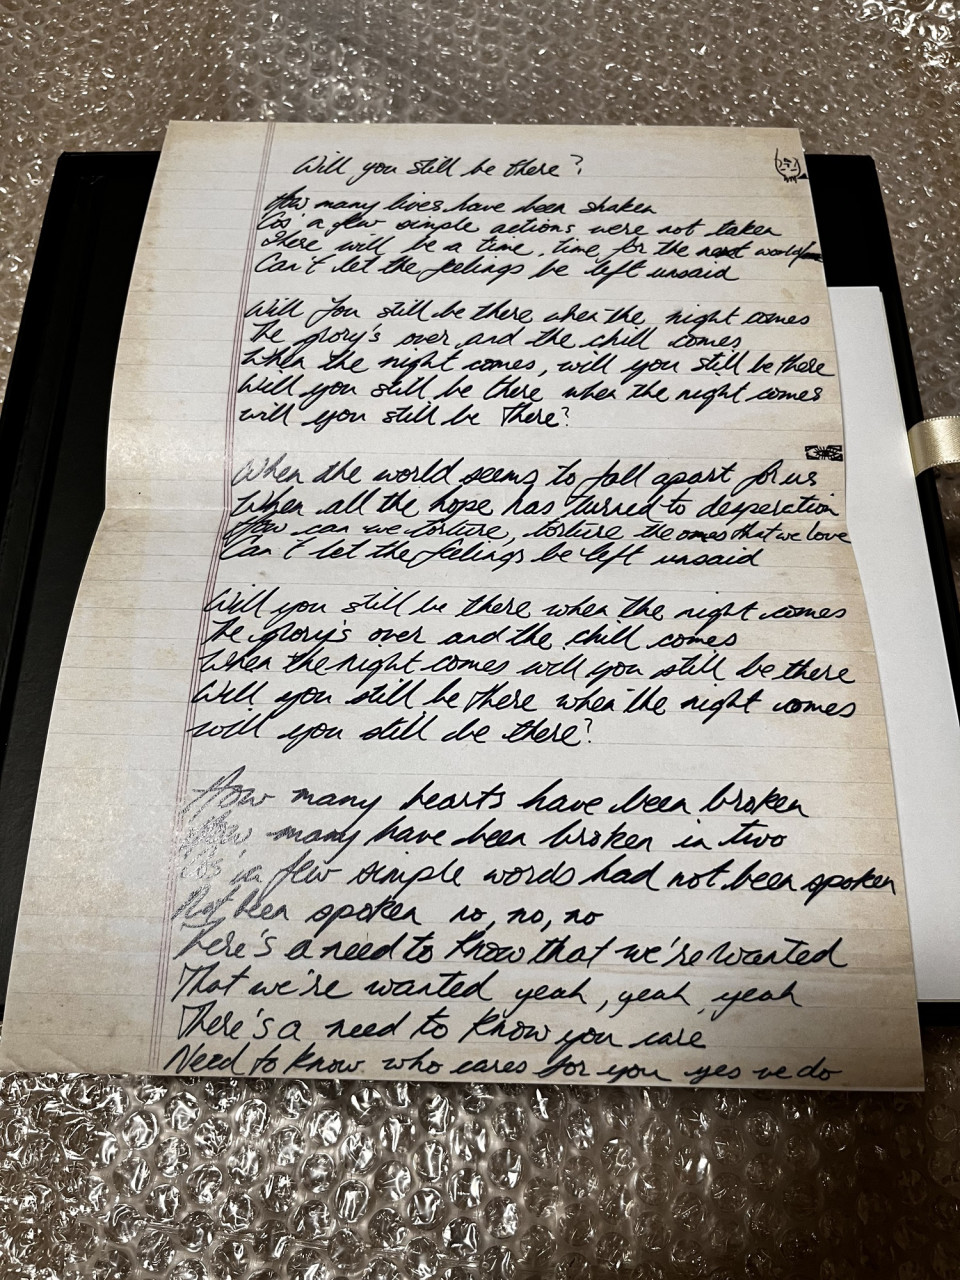 Will you still be there?
How many lives have been shaken
Cos' a few simple actions were not taken
There will be a time, time for the next world
Can't let the feelings be left unsaid
Will you still be there when the night comes
The glory's over and the chill comes
When the night comes, will you still be there
Will you still be there when the night comes
will you still be there?
When the world seems to fall apart for us
When all the hope has turned to desperation
How can we torture, torture the ones that we love
Can't let the feelings be left unsaid
Will you still be there when the night comes
The glory's over and the chill comes
When the night comes will you still be there
Will you still be there when the night comes
will you still be there?
How many hearts have been broken
How many have been broken in two
Cos' a few simple words had not been spoken
Not been spoken no, no, no
There's a need to know that we're wanted
That we're wanted yeah, yeah, yeah
There's a need to know you care
Need to know who cares for you yes we do